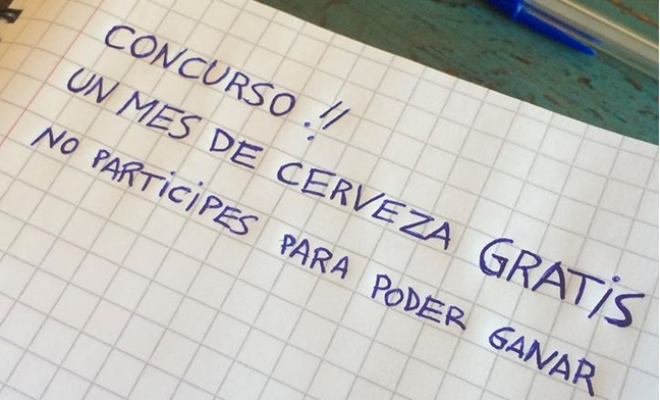 CONCURSO !!
UN MES DE CERVEZA GRATiS
NO PARTiCiPES PARA PODER GANAR